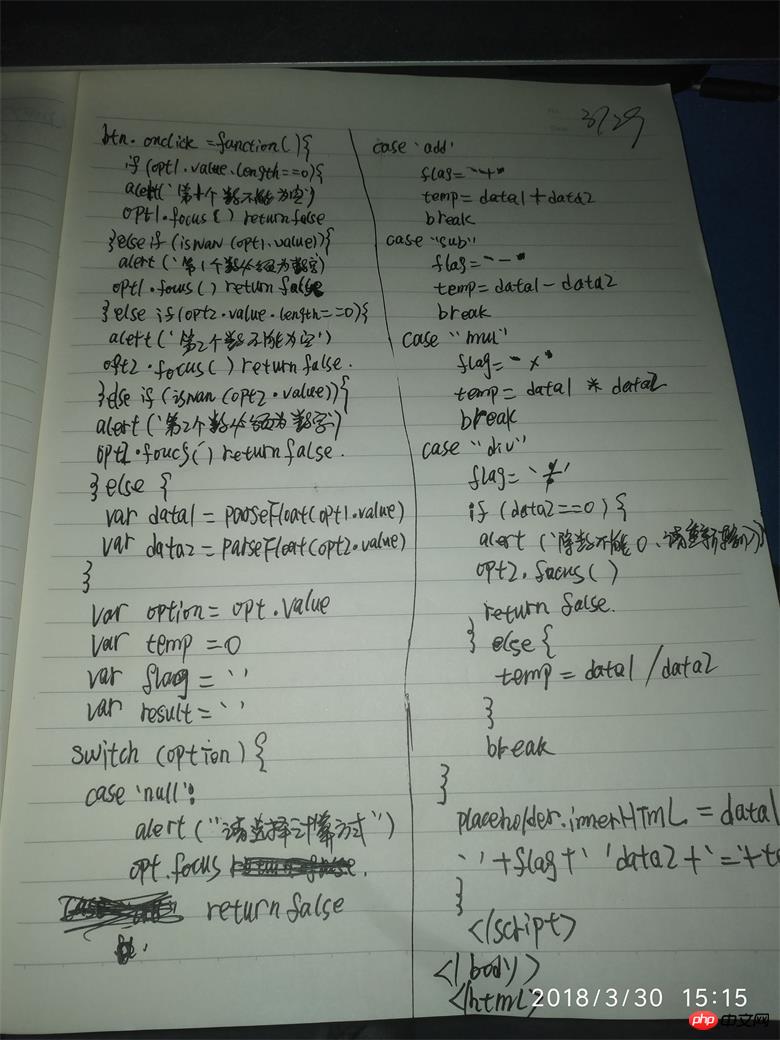 3/29
btn.onclick=function(){
if(opt1.value.length==0){
alert('第1个数不能为空')
opt1.focus() return false
}else if(isNaN(opt1.value)){
alert('第1个数必须为数字')
opt1.focus() return false
}else if(opt2.value.length==0){
alert('第2个数不能为空')
opt2.focus() return false.
}else if(isNaN(opt2.value)){
alert('第2个数必须为数字')
opt2.foucs() return false.
}else{
var data1=parseFloat(opt1.value)
var data2=parseFloat(opt2.value)
}
var option=opt.value
var temp=0
var flag=''
var result=''
switch(option){
case 'null':
alert("请选择计算方式")
opt.focus
return false
case 'add'
flag="+"
temp=data1+data2
break
case "sub"
flag="-"
temp=data1-data2
break
case "mul"
flag="×"
temp=data1*data2
break
case "div"
flag='÷'
if(data2==0){
alert('除数不能0,请重新输入')
opt2.focus()
return false.
}else{
temp=data1/data2
}
break
}
placeholder.innerHTML=data1
' '+flag+' 'data2+'='+te
}
</script>
</body>
</html>
2018/3/30 15:15
php 中文网